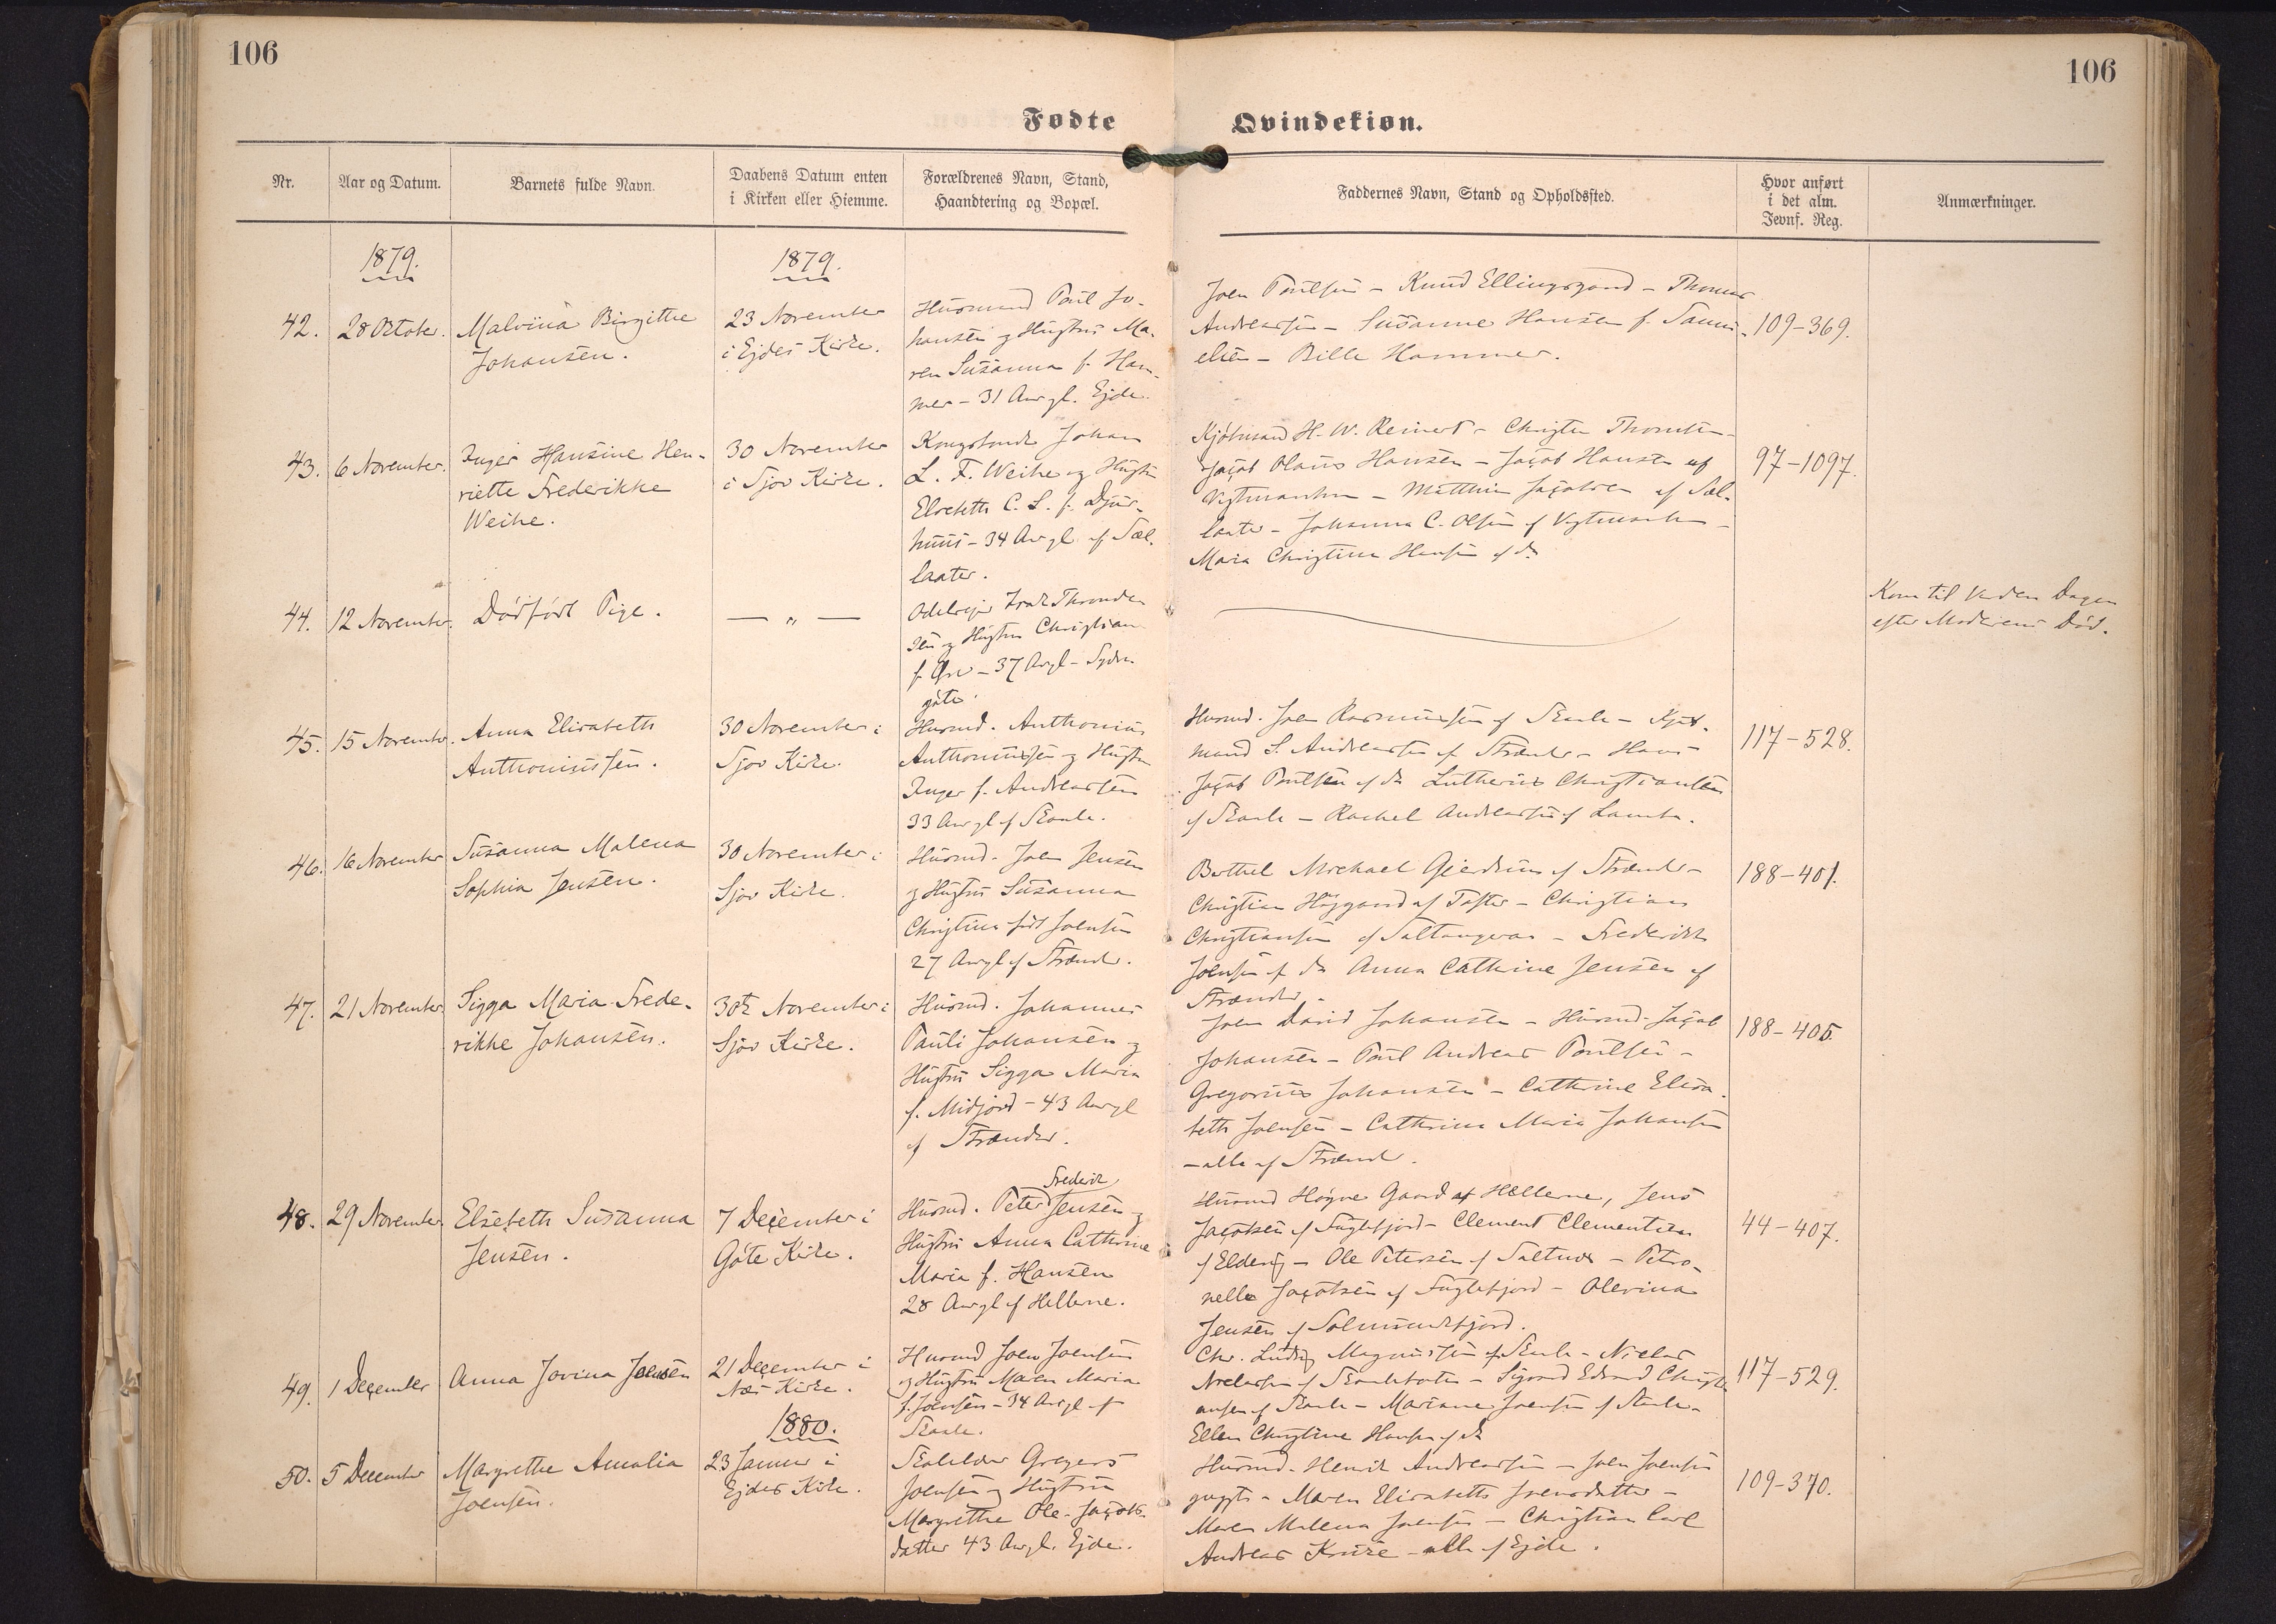 106
106
Fødte
Qvindekiøn.
Nr.
Aar og Datum.
Barnets fulde Navn.
Daabens Datum enten
i Kirken eller Hiemme.
Forældrenes Navn, Stand,
Haandtering og Bopæl.
Faddernes Navn, Stand og Opholdssted.
Hvor anført
i det alm.
Jevnf. Reg.
Anmærkninger.
1879.
1879.
42.
28 October.
Malvina Birgithe
Johansen.
23 November
i Ejdes Kirke.
Husmand Poul Jo-
hansen og Hustru Ma-
ren Susanna f. Ham-
mer - 31 Aar gl. Ejde.
Joen Poulsen - Knud Ellingsgaard - Thomas
Andreasen - Susanne Hansen f. Samu-
elsen - Bille Hammer.
109-369.
43.
6 November.
Inger Hansine Hen-
riette Frederikke
Weihe.
30 November
i Sjov Kirke.
Kongsbonde Johan
L. F. Weihe og Hustru
Elsebeth C. L. f. Djur-
huus - 34 Aar gl. af Sæl-
laater.
Kjøbmand H. W. Reinert - Thomsen
Jacob Olaus Hansen - Jacob Hansen af
Vestmanhavn - Jacobsen af Sæl-
laater - Johanna C. Olsen af Vestmanhavn -
Maria Christine Hansen af do
97-1097.
44.
12 November.
Dødfødt Pige.
— „ —
Odelsejer Isak Thomsen
og Hustru Christian
- 37 Aar gl - Sydre
gøte.
Kom til Verden Dagen
efter Moderens Død.
45.
15 November.
Anna Elisabeth
Anthoniussen.
30 November i
Sjov Kirke.
Husmd. Anthonius
Anthoniussen og Hustru
Inger f. Andreasen
33 Aar gl af Skaale.
Husmd. Joen Rasmussen af Skaale - Kjøb-
mand S. Andreasen af Strænder - Hans
Jacob Poulsen af do Lutherus Christiansen
af Skaale - Rachel Andreasen af Lamba.
117-528.
46.
16 November
Susanna Malena
Sophia Jensen.
30 November i
Sjov Kirke.
Husmd. Joen Jensen
og Hustru Susanna
Christina født Joensen
27 Aar gl af Strænder.
Berthel Michael Gjerdrum af Strænder -
Christian Højgaard af Tofter - Christian
Christiansen af Saltangeraa - Frederikke
Joensen af do Anna Cathrine Jensen af
Strænder.
188-401.
47.
21 November.
Sigga Maria Frede-
rikke Johansen.
30te November i
Sjov Kirke.
Husmd. Johannes
Pauli Johansen og
Hustru Sigga Maria
f. Midjord - 43 Aar gl
af Strænder.
Joen David Johansen - Husmd. Jacob
Johansen - Poul Andreas Poulsen -
Gregorius Johansen - Cathrine Elisa-
beth Joensen - Cathrina Maria Johansen
- alle af Strænder.
188-405.
48.
29 November.
Elsebeth Susanna
Jensen.
7 December i
Gøte Kirke.
Frederik
Husmd. Peter Jensen og
Hustru Anna Cathrine
Maria f. Hansen
28 Aar gl af Hellerne.
Husmd Høgne Gaard af Hellerne, Jens
Jacobsen af Fuglefjord - Clement Clementsen
af Eldevig - Ole Petersen af Saltnæs - Petro-
nelle Jacobsen af Fuglefjord - Olevina
Jensen af Solmundefjord.
44-407.
49.
1 December
Anna Jovina Joensen
21 December i
Næs Kirke.
Husmd Joen Joensen
og Hustru Maren Maria
f. Joensen - 34 Aar gl af
Skaale.
Chr. Ludvig Magnussen af Skaale - Niclas
Niclasen af Skaalebotn - Sigvard Edvard Christi-
ansen af Skaale - Mariane Joensen af Skaale -
Ellen Christine Hansen af do
117-529.
1880.
50.
5 December
Margrethe Amalia
Joensen.
23 Januar i
Ejdes Kirke.
Skolelærer Gregers
Joensen og Hustru
Margrethe Ole-Jacobs-
datter 43 Aar gl. Ejde.
Husmd. Henrik Andreasen - Joen Joensen
- Maren Elisabeth Joensdatter -
Maren Malena Joensen - Christian Carl
Andreas Kruse - alle af Ejde.
109-370.